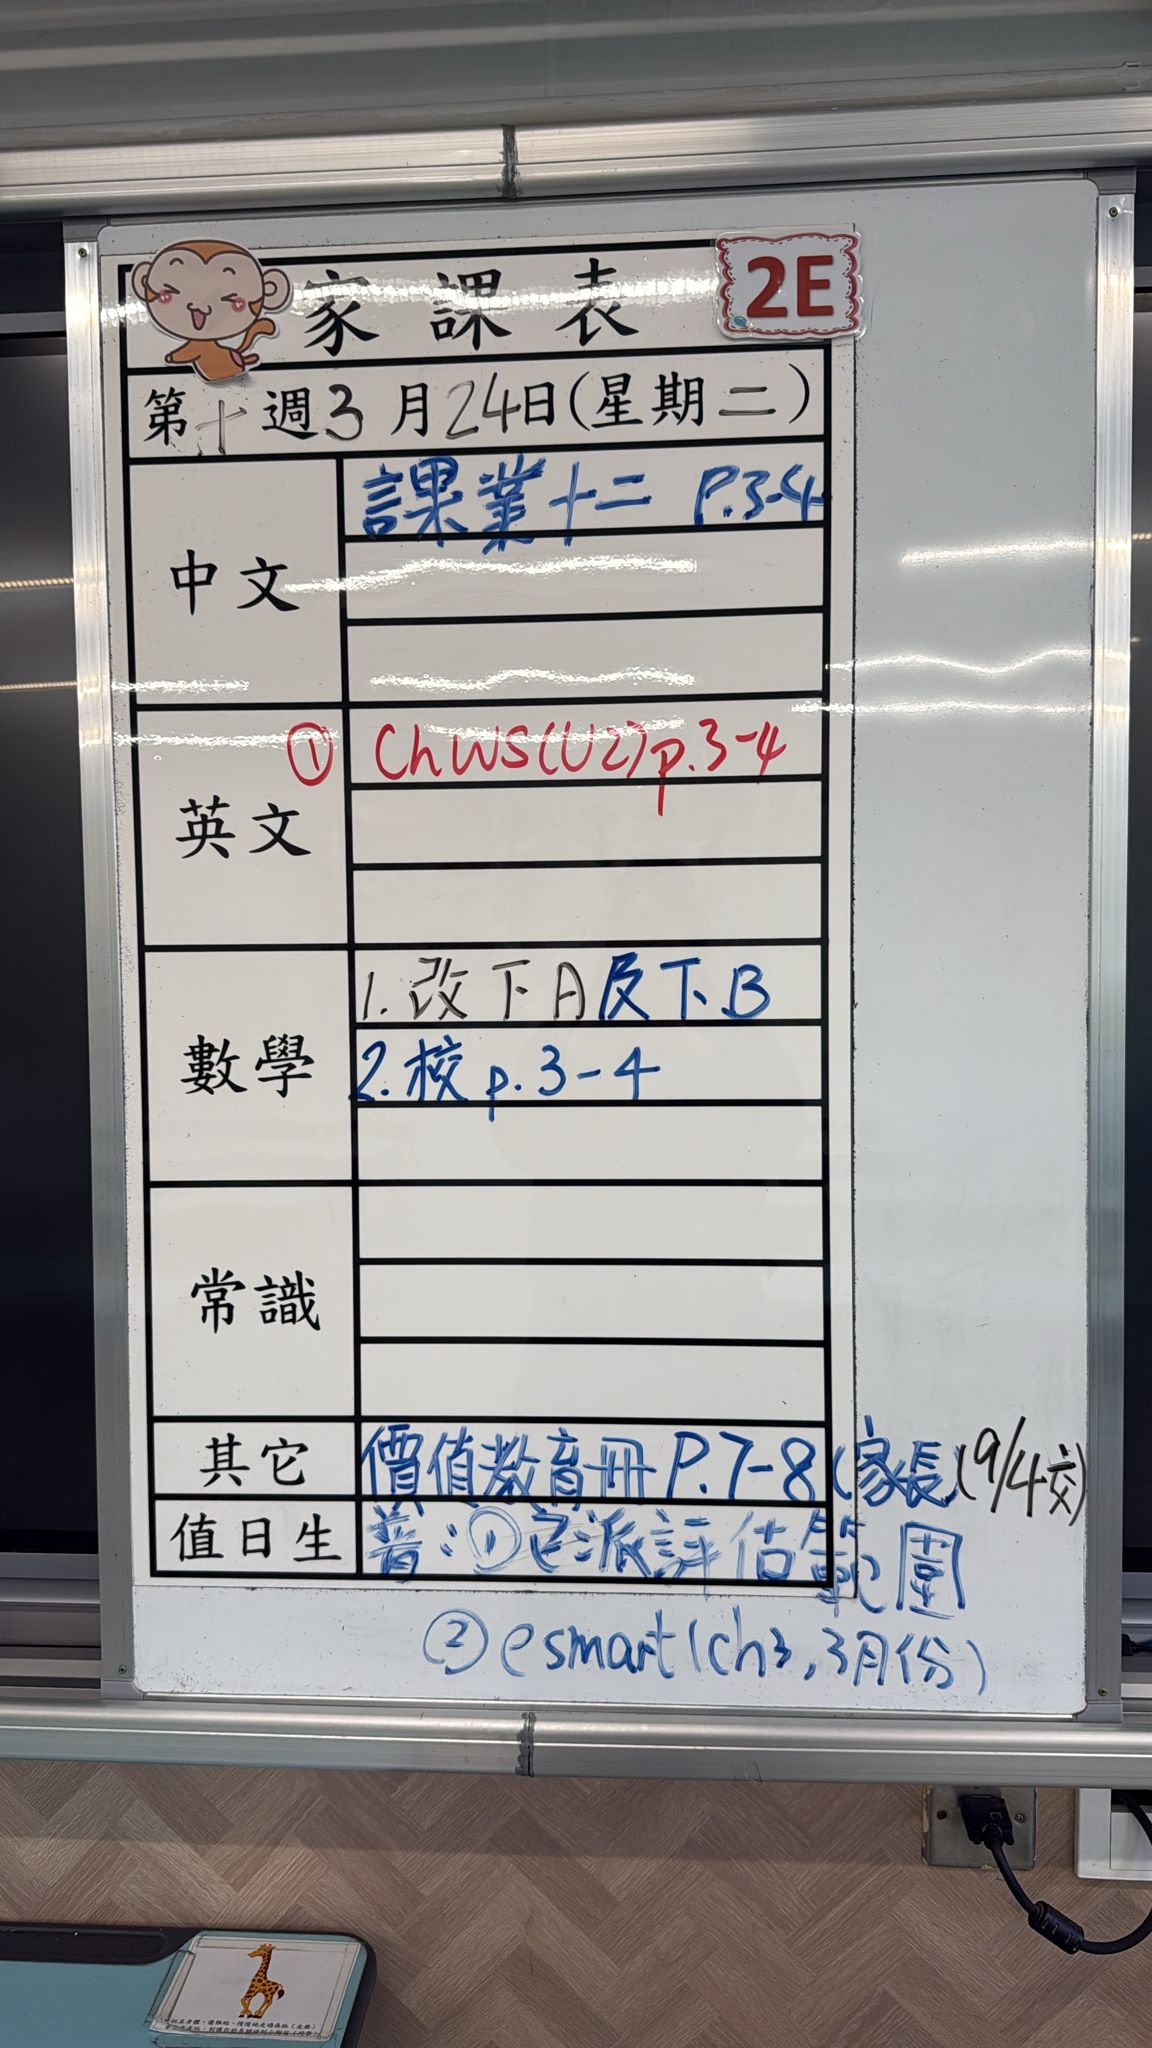 家課表
2E
第十週3月24日(星期二)
中文
課業十二 P.3-4
英文
① Ch WS(U2)p.3-4
數學
1.改下A及下B
2.校p.3-4
常識
其它
價值教育冊P.7-8(家長)(9/4交)
值日生
普:①已派評估範圍
②esmart(ch3,3月份)